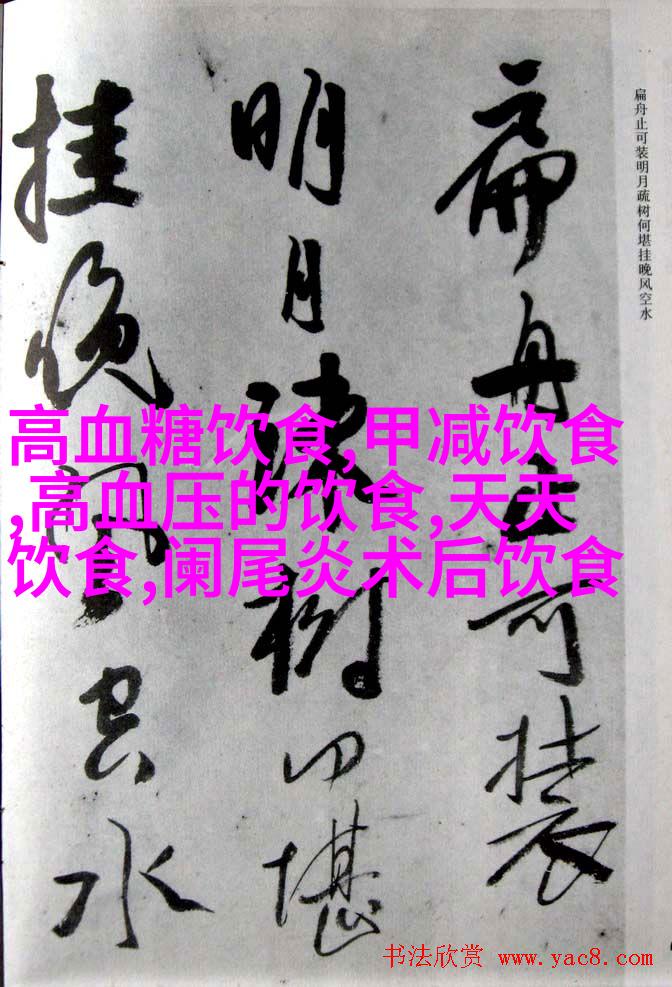 扁舟止可装明月疏树何堪挂晚风空水
扁舟止可装
明月疏树何堪
挂晚风空水
高血糖饮食,甲减饮食
,高血压的饮食,天天
饮食,阑尾炎术后饮食
书法欣赏 www.yac8.com